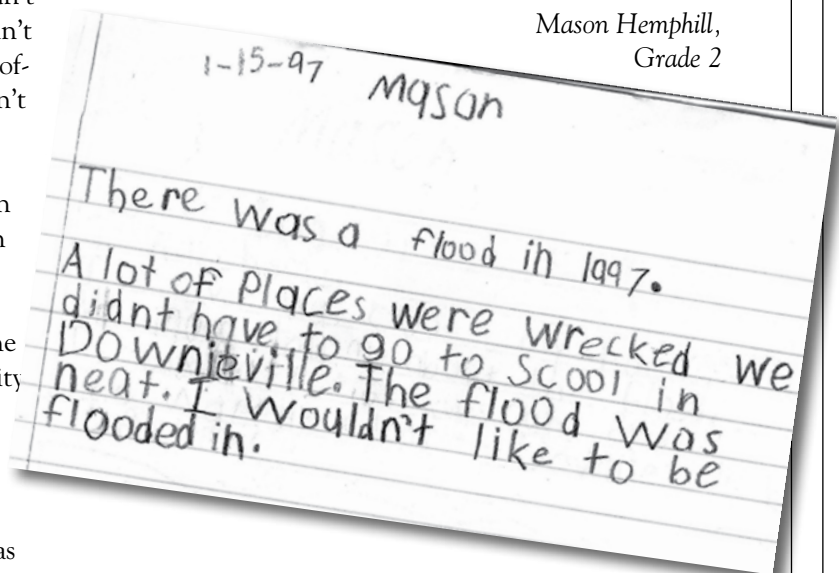 n't
of-
n't
n
n
ne
ity
as
Mason Hemphill,
Grade 2
1-15-97 Mason
There was a flood in 1997.
A lot of places were wrecked we
didnt have to go to scool in
Downieville. The flood was
neat. I wouldn't like to be
flooded in.